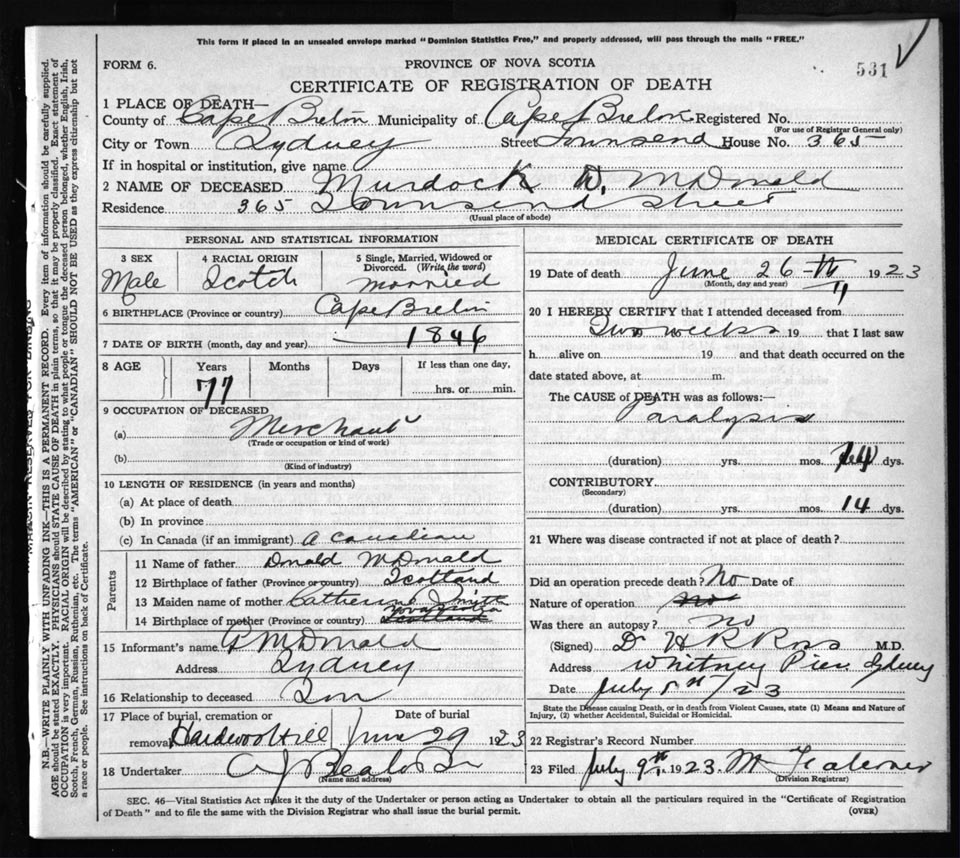 This form if placed in an unsealed envelope marked "Dominion Statistics Free," and properly addressed, will pass through the mails "FREE."
FORM 6.
PROVINCE OF NOVA SCOTIA
531
CERTIFICATE OF REGISTRATION OF DEATH
1 PLACE OF DEATH—
County of Cape Breton Municipality of Cape Breton Registered No.
(For use of Registrar General only)
City or Town Sydney Street Townsend House No. 365
If in hospital or institution, give name
2 NAME OF DECEASED Murdock D. McDonald
Residence 365 Townsend Street
(Usual place of abode)
PERSONAL AND STATISTICAL INFORMATION
3 SEX
Male
4 RACIAL ORIGIN
Scotch
5 Single, Married, Widowed or Divorced. (Write the word)
married
6 BIRTHPLACE (Province or country) Cape Breton
7 DATE OF BIRTH (month, day and year) 1846
8 AGE Years Months Days If less than one day,
77 hrs. or min.
9 OCCUPATION OF DECEASED
(a) Merchant
(Trade or occupation or kind of work)
(b)
(Kind of industry)
10 LENGTH OF RESIDENCE (in years and months)
(a) At place of death
(b) In province
(c) In Canada (if an immigrant) a canadian
Parents
11 Name of father Donald McDonald
12 Birthplace of father (Province or country) Scotland
13 Maiden name of mother Catherine Smith
14 Birthplace of mother (Province or country) Nova Scotia Scotland
15 Informant's name McDonald
Address Sydney
16 Relationship to deceased Son
17 Place of burial, cremation or removal Hardwood Hill
Date of burial
June 29 1923
18 Undertaker
(Name and address)
MEDICAL CERTIFICATE OF DEATH
19 Date of death June 26th 1923
(Month, day and year)
20 I HEREBY CERTIFY that I attended deceased from
Two weeks 19 that I last saw
h alive on 19 and that death occurred on the
date stated above, at m.
The CAUSE of DEATH was as follows:—
Paralysis
(duration) yrs. mos. 14 dys.
CONTRIBUTORY
(Secondary)
(duration) yrs. mos. 14 dys.
21 Where was disease contracted if not at place of death?
Did an operation precede death? No Date of
Nature of operation no
Was there an autopsy? no
(Signed) Dr H R Ross M.D.
Address Whitney Pier Sydney
Date July 5th/23
State the Disease causing Death, or in death from Violent Causes, state (1) Means and Nature of Injury, (2) whether Accidental, Suicidal or Homicidal.
22 Registrar's Record Number
23 Filed July 9th 1923
(Division Registrar)
SEC. 46—Vital Statistics Act makes it the duty of the Undertaker or person acting as Undertaker to obtain all the particulars required in the "Certificate of Registration
of Death" and to file the same with the Division Registrar who shall issue the burial permit.
(OVER)
N.B.—WRITE PLAINLY WITH UNFADING INK—THIS IS A PERMANENT RECORD. Every item of information should be carefully supplied.
AGE should be stated EXACTLY. PHYSICIANS should STATE CAUSE OF DEATH in plain terms, so that it may be properly classified. Exact statement of
OCCUPATION is very important. RACIAL ORIGIN will be described by stating to what people or tongue the deceased person belonged, whether English, Irish,
Scotch, French, German, Russian, Ruthenian, etc. The terms "AMERICAN" or "CANADIAN" SHOULD NOT BE USED as they express citizenship but not
a race or people. See instructions on back of Certificate.